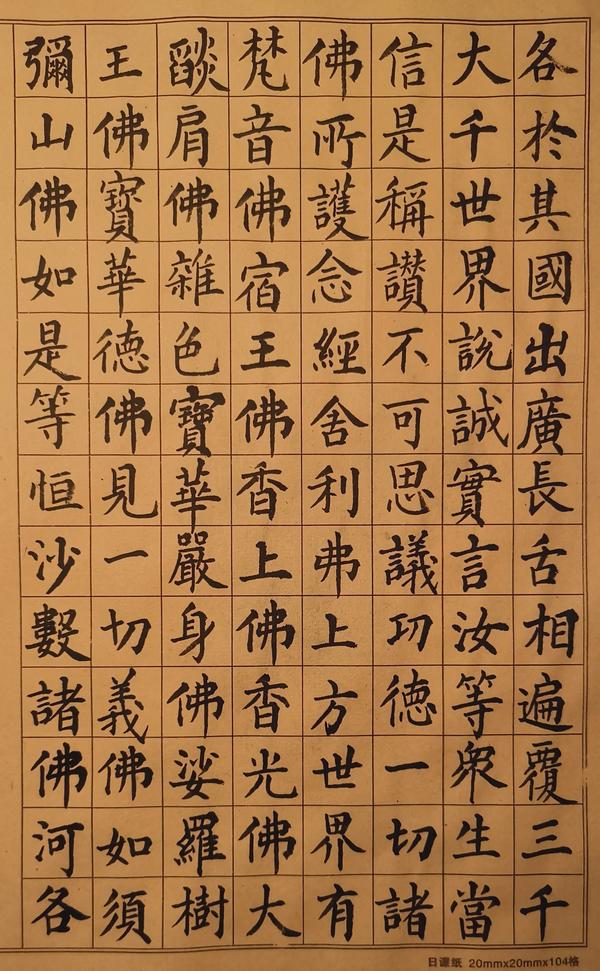 各於其國出廣長舌相遍覆三千
大千世界說誠實言汝等眾生當
信是稱讚不可思議功德一切諸
佛所護念經舍利弗上方世界有
梵音佛宿王佛香上佛香光佛大
燄肩佛雜色寶華嚴身佛娑羅樹
王佛寶華德佛見一切義佛如須
彌山佛如是等恒沙數諸佛河各
日课纸 20mmx20mmx104格